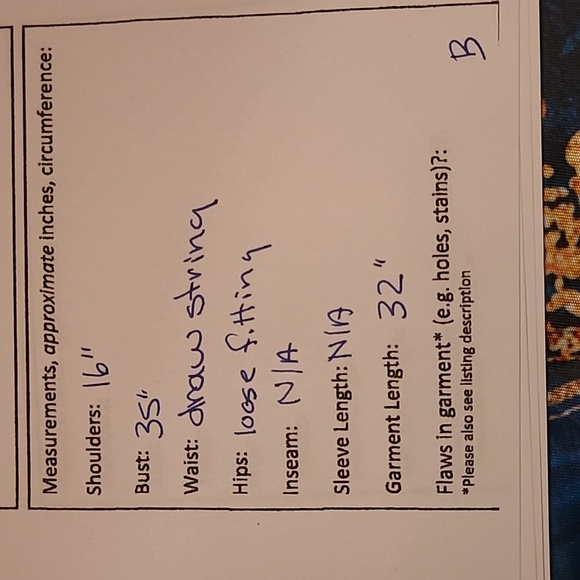 Measurements, approximate inches, circumference:
Shoulders: 16"
Bust: 35"
Waist: draw string
Hips: loose fitting
Inseam: N/A
Sleeve Length: N/A
Garment Length: 32"
Flaws in garment* (e.g. holes, stains)?:
*Please also see listing description
B